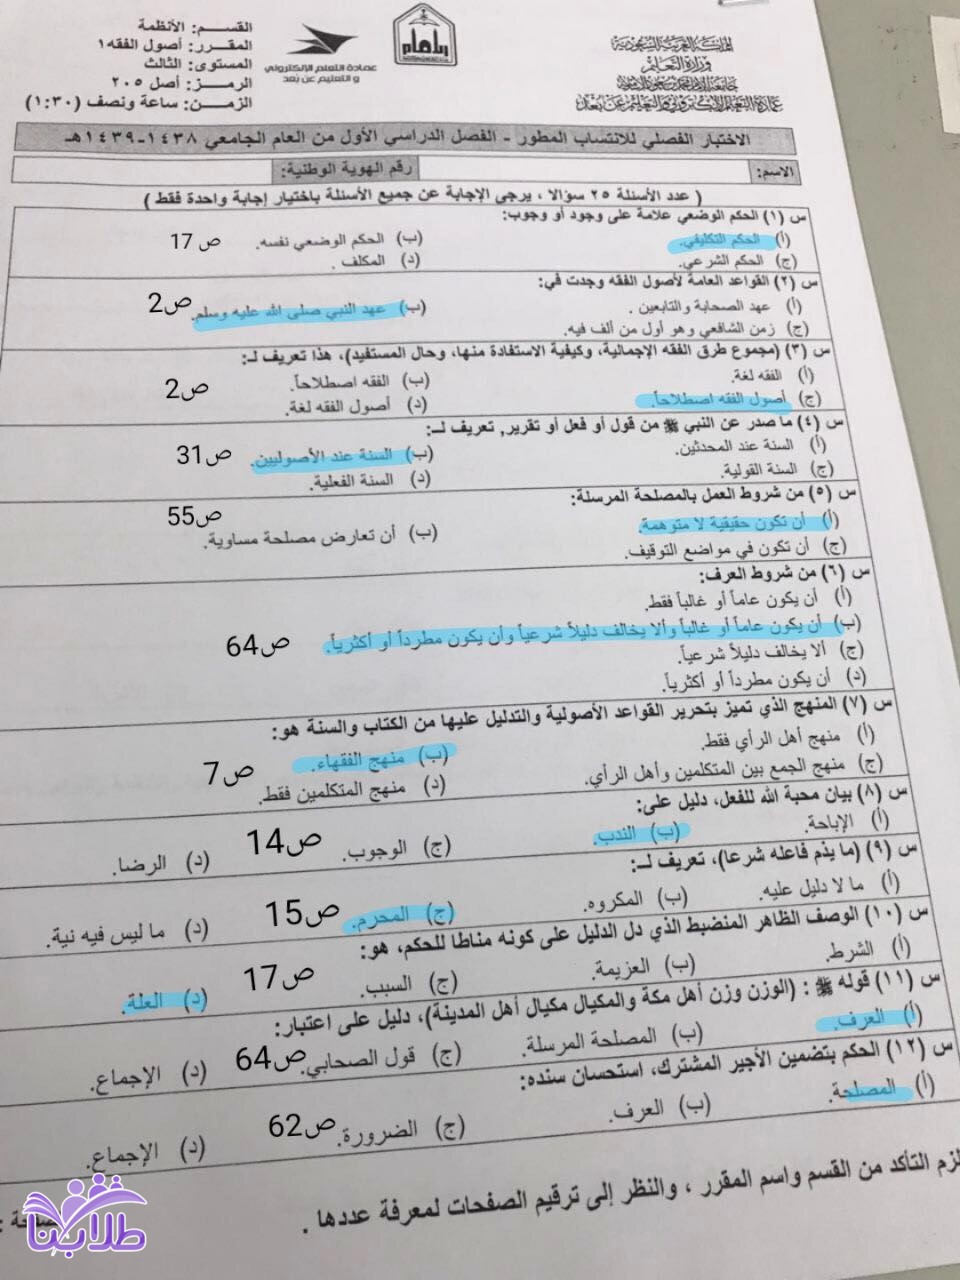 المملكة العربية السعودية
وزارة التعليم
جامعة الإمام محمد بن سعود الإسلامية
عمادة التعلم الإلكتروني والتعليم عن بعد
عمادة التعلم الإلكتروني
و التعليم عن بعد
القسم: الأنظمة
المقرر: أصول الفقه١
المستوى: الثالث
الرمز: أصل ٢٠٥
الزمن: ساعة ونصف (١:٣٠)
الاختبار الفصلي للانتساب المطور - الفصل الدراسي الأول من العام الجامعي ١٤٣٨-١٤٣٩هـ
الاسم: رقم الهوية الوطنية:
( عدد الأسئلة ٢٥ سؤالا ، يرجى الإجابة عن جميع الأسئلة باختيار إجابة واحدة فقط )
س (١) الحكم الوضعي علامة على وجود أو وجوب:
(أ) الحكم التكليفي. (ب) الحكم الوضعي نفسه. ص 17
(ج) الحكم الشرعي. (د) المكلف .
س (٢) القواعد العامة لأصول الفقه وجدت في:
(أ) عهد الصحابة والتابعين . (ب) عهد النبي صلى الله عليه وسلم. ص2
(ج) زمن الشافعي وهو أول من ألف فيه.
س (٣) (مجموع طرق الفقه الإجمالية، وكيفية الاستفادة منها، وحال المستفيد)، هذا تعريف لـ:
(أ) الفقه لغة. (ب) الفقه اصطلاحاً. ص2
(ج) أصول الفقه اصطلاحاً. (د) أصول الفقه لغة.
س (٤) ما صدر عن النبي ﷺ من قول أو فعل أو تقرير, تعريف لـ:
(أ) السنة عند المحدثين. (ب) السنة عند الأصوليين. ص31
(ج) السنة القولية. (د) السنة الفعلية.
س (٥) من شروط العمل بالمصلحة المرسلة:
(أ) أن تكون حقيقية لا متوهمة. (ب) أن تعارض مصلحة مساوية. ص55
(ج) أن تكون في مواضع التوقيف.
س (٦) من شروط العرف:
(أ) أن يكون عاماً أو غالباً فقط.
(ب) أن يكون عاماً أو غالباً وألا يخالف دليلاً شرعياً وأن يكون مطرداً أو أكثرياً. ص64
(ج) ألا يخالف دليلاً شرعياً.
(د) أن يكون مطرداً أو أكثرياً.
س (٧) المنهج الذي تميز بتحرير القواعد الأصولية والتدليل عليها من الكتاب والسنة هو:
(أ) منهج أهل الرأي فقط. (ب) منهج الفقهاء. ص7
(ج) منهج الجمع بين المتكلمين وأهل الرأي. (د) منهج المتكلمين فقط.
س (٨) بيان محبة الله للفعل، دليل على:
(أ) الإباحة. (ب) الندب. (ج) الوجوب. (د) الرضا. ص14
س (٩) (ما يذم فاعله شرعا)، تعريف لـ:
(أ) ما لا دليل عليه. (ب) المكروه. (ج) المحرم. (د) ما ليس فيه نية. ص15
س (١٠) الوصف الظاهر المنضبط الذي دل الدليل على كونه مناطا للحكم، هو:
(أ) الشرط. (ب) العزيمة. (ج) السبب. (د) العلة. ص17
س (١١) قوله ﷺ : (الوزن وزن أهل مكة والمكيال مكيال أهل المدينة)، دليل على اعتبار:
(أ) العرف. (ب) المصلحة المرسلة. (ج) قول الصحابي. (د) الإجماع. ص64
س (١٢) الحكم بتضمين الأجير المشترك، استحسان سنده:
(أ) المصلحة. (ب) العرف. (ج) الضرورة. (د) الإجماع. ص62
التأكد من القسم واسم المقرر ، والنظر إلى ترقيم الصفحات لمعرفة عددها .
طلابنا